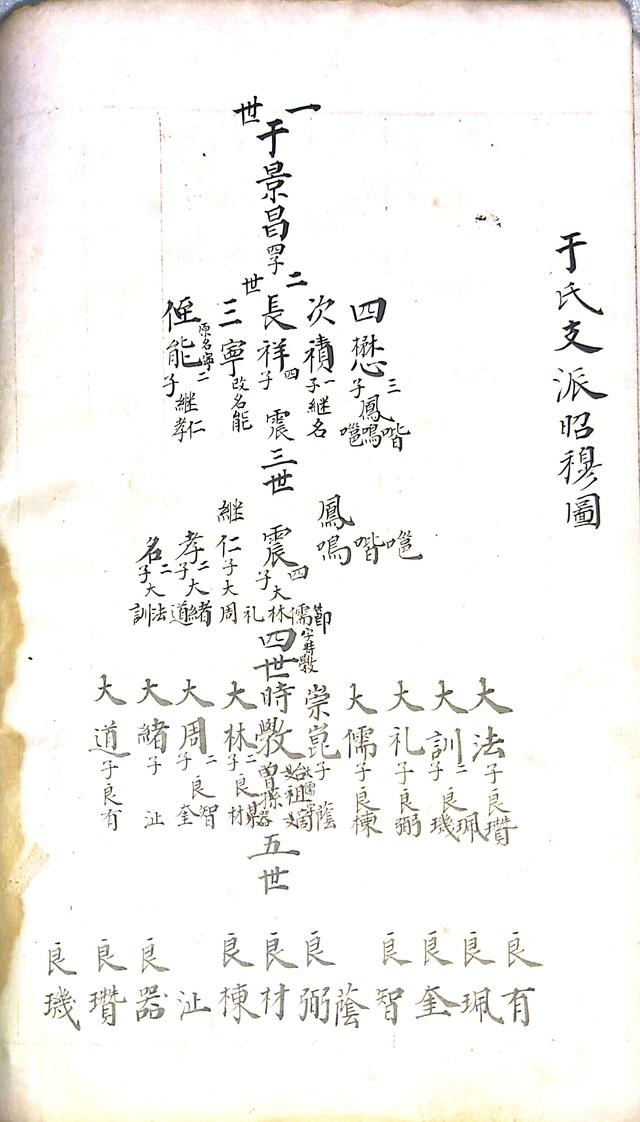 于氏支派昭穆圖
一世
于景昌四子
二世
四懋子三鳳鳴喈嗈
次禎子一継名
長祥子四震
三寧改名能
侄能原名寧子二継仁孝
三世
鳳鳴喈嗈
震子四大林儒礼節
継仁子大周
孝子二大緒道
名子二大法訓
四世
大法子良瓚
大訓子二良珮璣
大礼子良弼
大儒子良棟
崇崑子蔭
時斆
大林子二良材器
大周子二良智奎
大緒子沚
大道子良有
五世
良有
良珮
良奎
良智
蔭
良弼
良材
良棟
沚
良器
良瓚
良璣